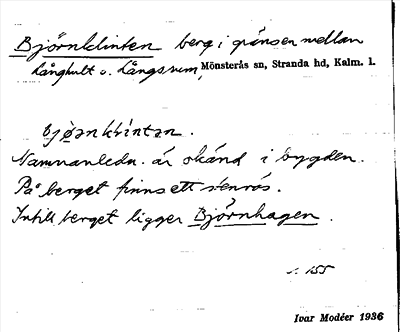 Björnklinten berg i gränsen mellan
Långhult o. Långsrum, Mönsterås sn, Stranda hd, Kalm. l.
Namnanledn. är okänd i bygden.
På berget finns ett stenrös.
Intill berget ligger Björnhagen.
155
Ivar Modéer 1936